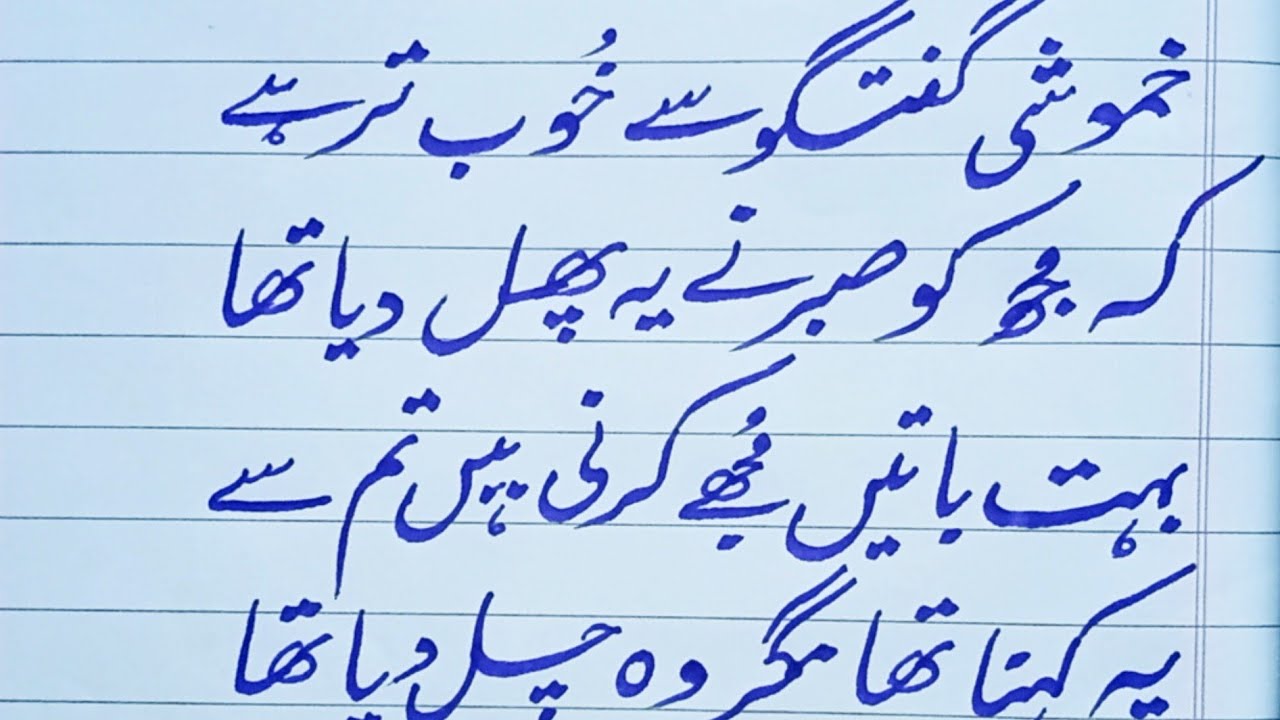 خموشی گفتگو سے خُوب تر ہے
کہ مجھ کو صبر نے یہ پھل دیا تھا
بہت باتیں مُجھے کرنی ہیں تم سے
یہ کہنا تھا مگر وہ چل دیا تھا